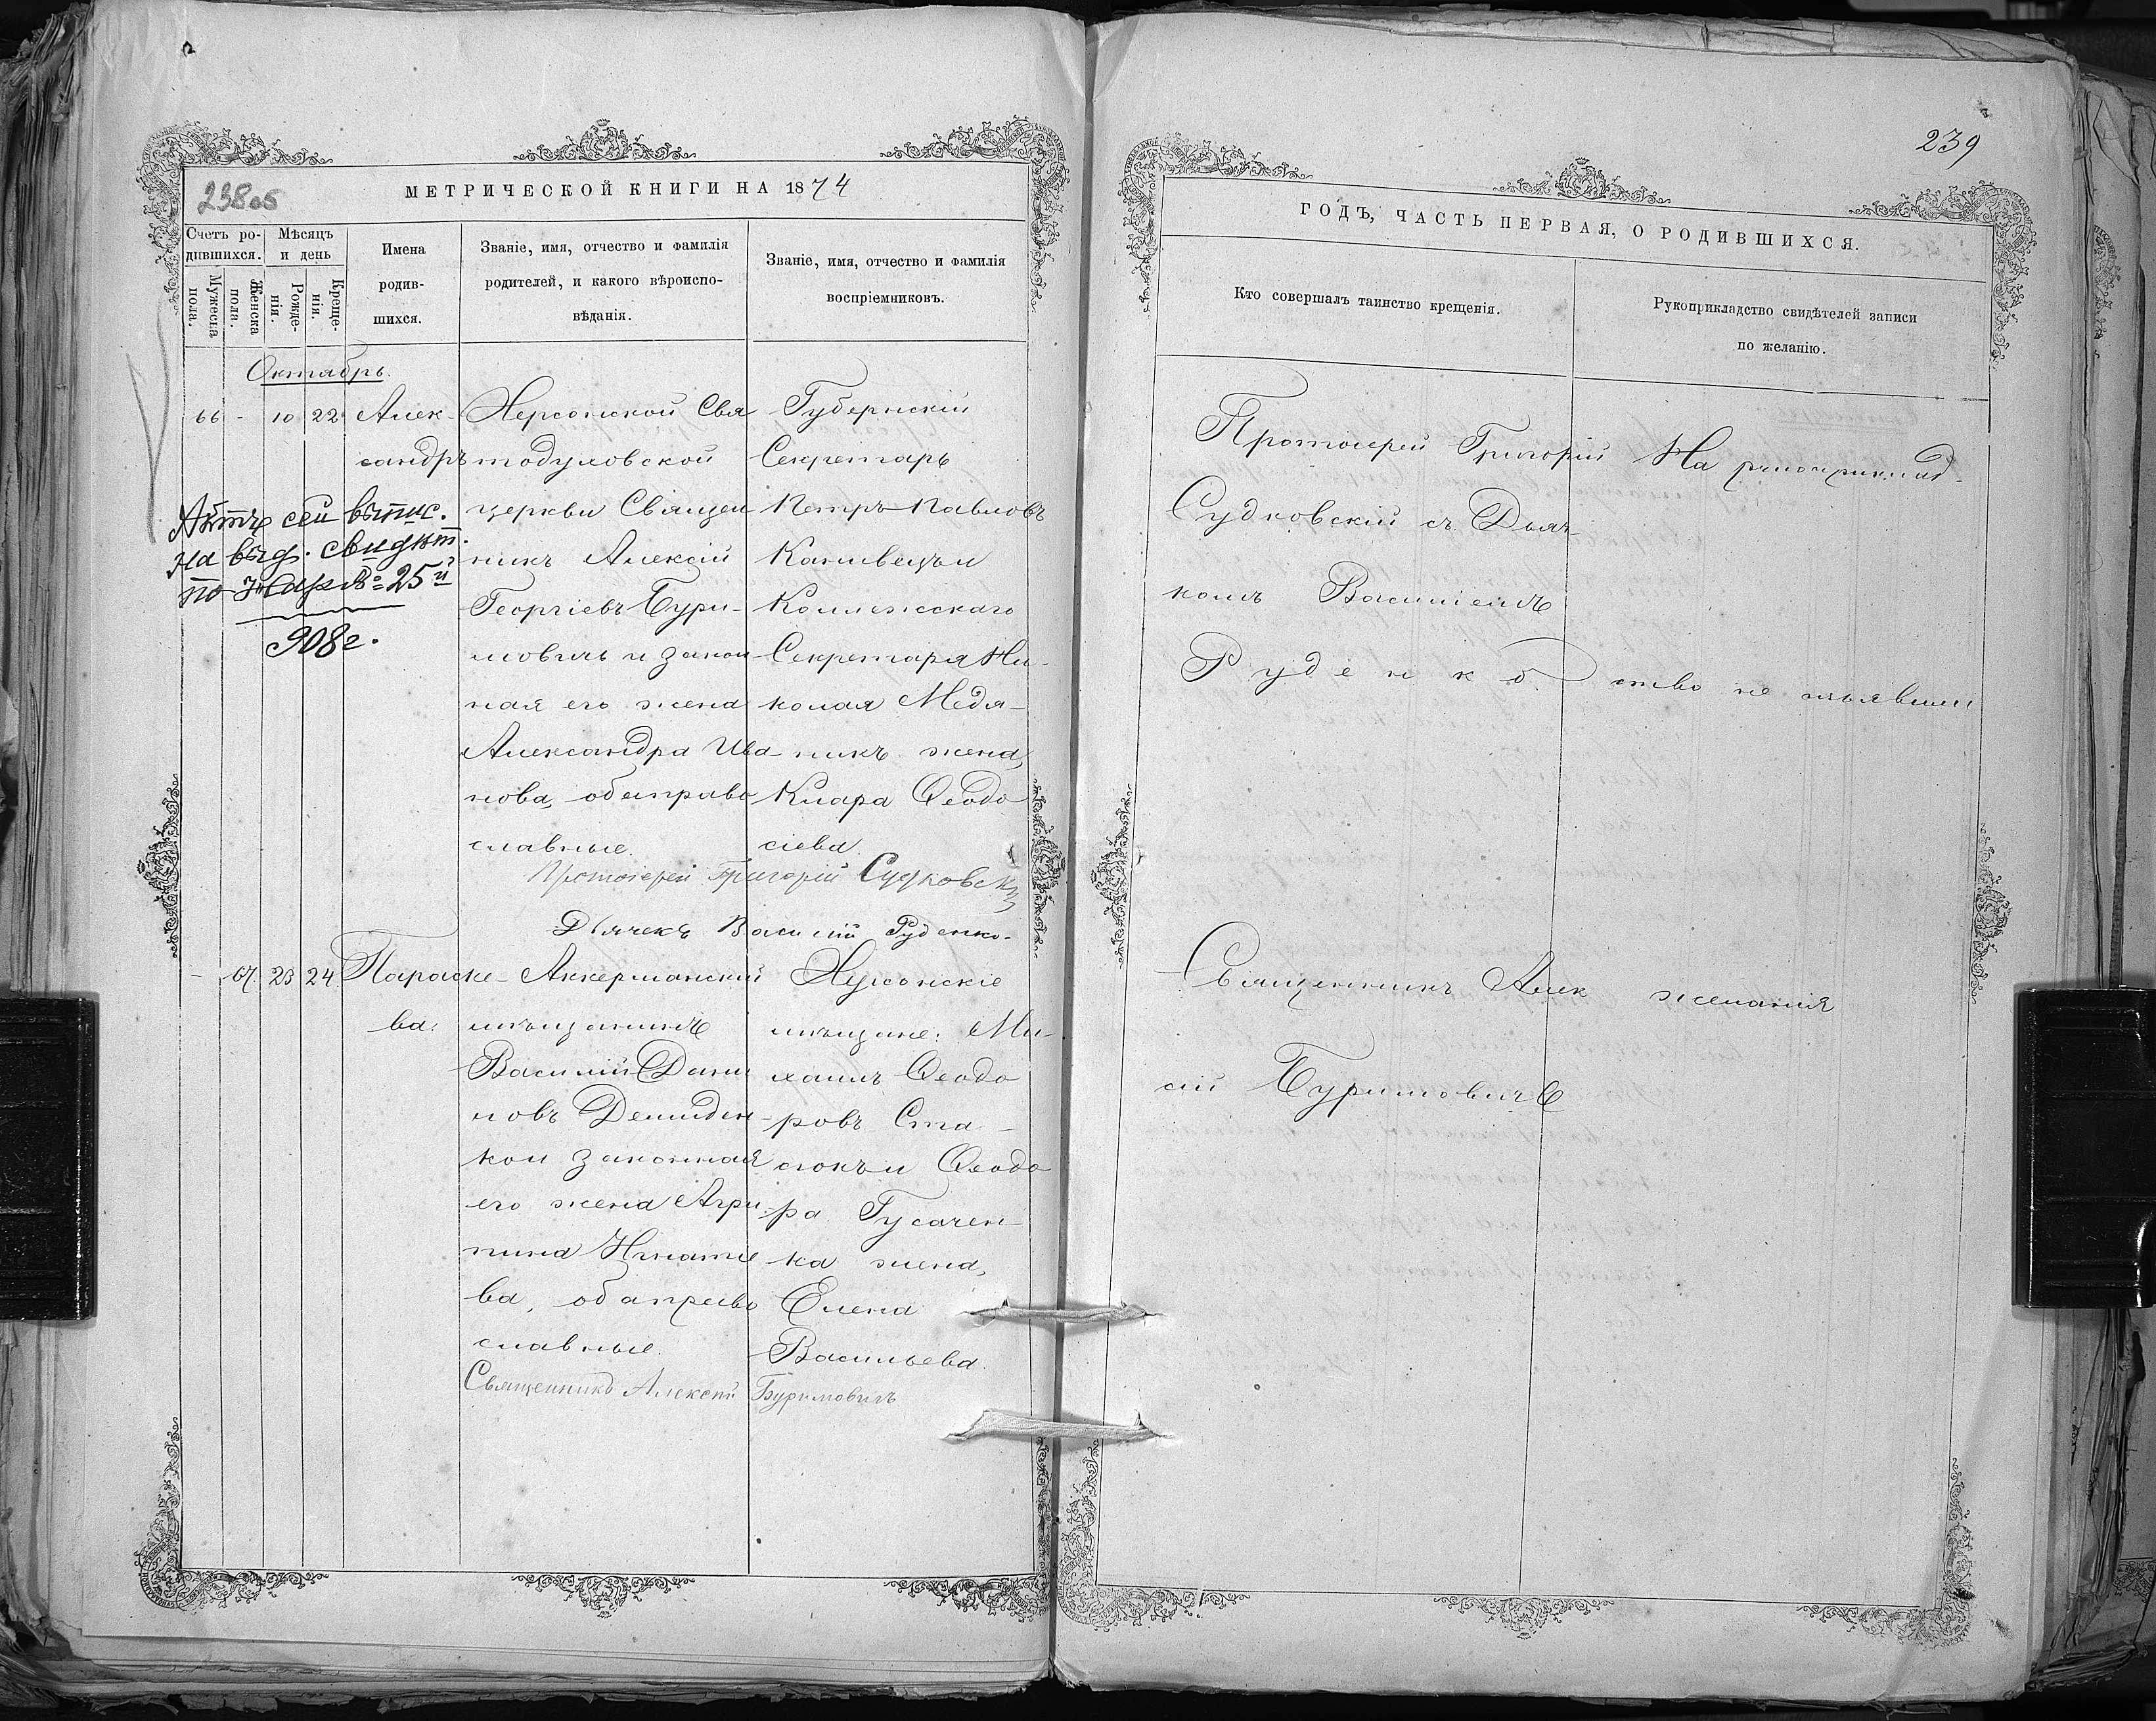 238об
МЕТРИЧЕСКОЙ КНИГИ НА 1874
Счетъ родившихся.
Мѣсяцъ и день
Мужеска пола.
Женска пола.
Рожденія.
Крещенія.
Имена
родив-
шихся.
Званіе, имя, отчество и фамилія
родителей, и какого вѣроиспо-
вѣданія.
Званіе, имя, отчество и фамилія
воспріемниковъ.
Октябрь.
66 - 10 22
Алек-
сандръ
Актъ сей выпис.
на выд. свидѣт.
по 25
908 г.
Херсонской Свя
тодуховской
церкви Священ
никъ Алексій
Георгіевъ Бури-
мовичъ и закон
ная его жена
Александра Ива
нова, оба право
славные.
Губернскій
Секретарь
Петръ Павловъ
Канивецъ и
Коллежскаго
Секретаря Ни-
колая Медя-
никъ жена,
Клара Ѳеодо
сіева.
Протоіерей Григорій Судковскій
Дьячекъ Василій Руденко.
- 67. 23 24
Параске-
ва.
Аккерманскій
мѣщанинъ
Василій Дани
ловъ Демиден-
ко и законная
его жена Агри
пина Игнатіе
ва, оба право
славные.
Херсонскіе
мѣщане: Ми-
хаилъ Ѳеодо
ровъ Ста-
сюкъ и Ѳеодо
ра Гусачен-
ка жена,
Елена
Васильева.
Священникъ Алексій Буримовичъ
239
ГОДЪ, ЧАСТЬ ПЕРВАЯ, О РОДИВШИХСЯ.
Кто совершалъ таинство крещенія.
Рукоприкладство свидѣтелей записи
по желанію.
Протоіерей Григорій
Судковскій съ Дьяч-
комъ Василіемъ
Руденко.
На рукоприклад-
ство не изъявили
Священникъ Алек
сій Буримовичъ
желанія